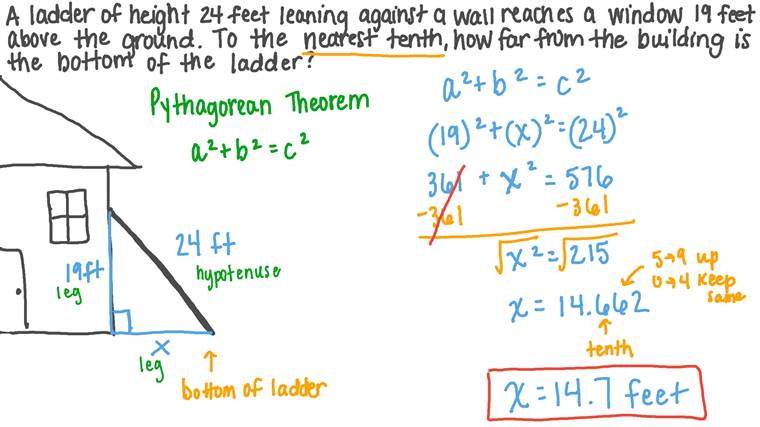 A ladder of height 24 feet leaning against a wall reaches a window 19 feet
above the ground. To the nearest tenth, how far from the building is
the bottom of the ladder?
Pythagorean Theorem
a² + b² = c²
24 ft
hypotenuse
19 ft
leg
x
leg
↑
bottom of ladder
a² + b² = c²
(19)² + (x)² = (24)²
361 + x² = 576
-361 -361
√x² = √215
5→9 up
0→4 keep
same
x = 14.662
↑
tenth
x = 14.7 feet